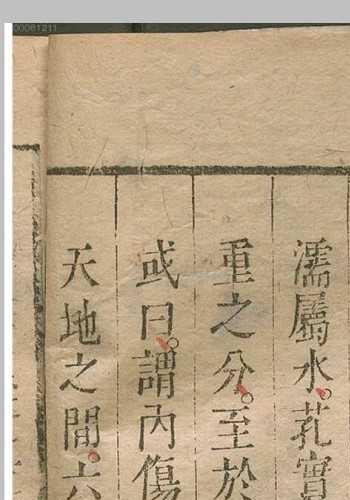 00061211
濡屬水。孔實
重之分。至於
或曰。謂內傷
天地之間。六